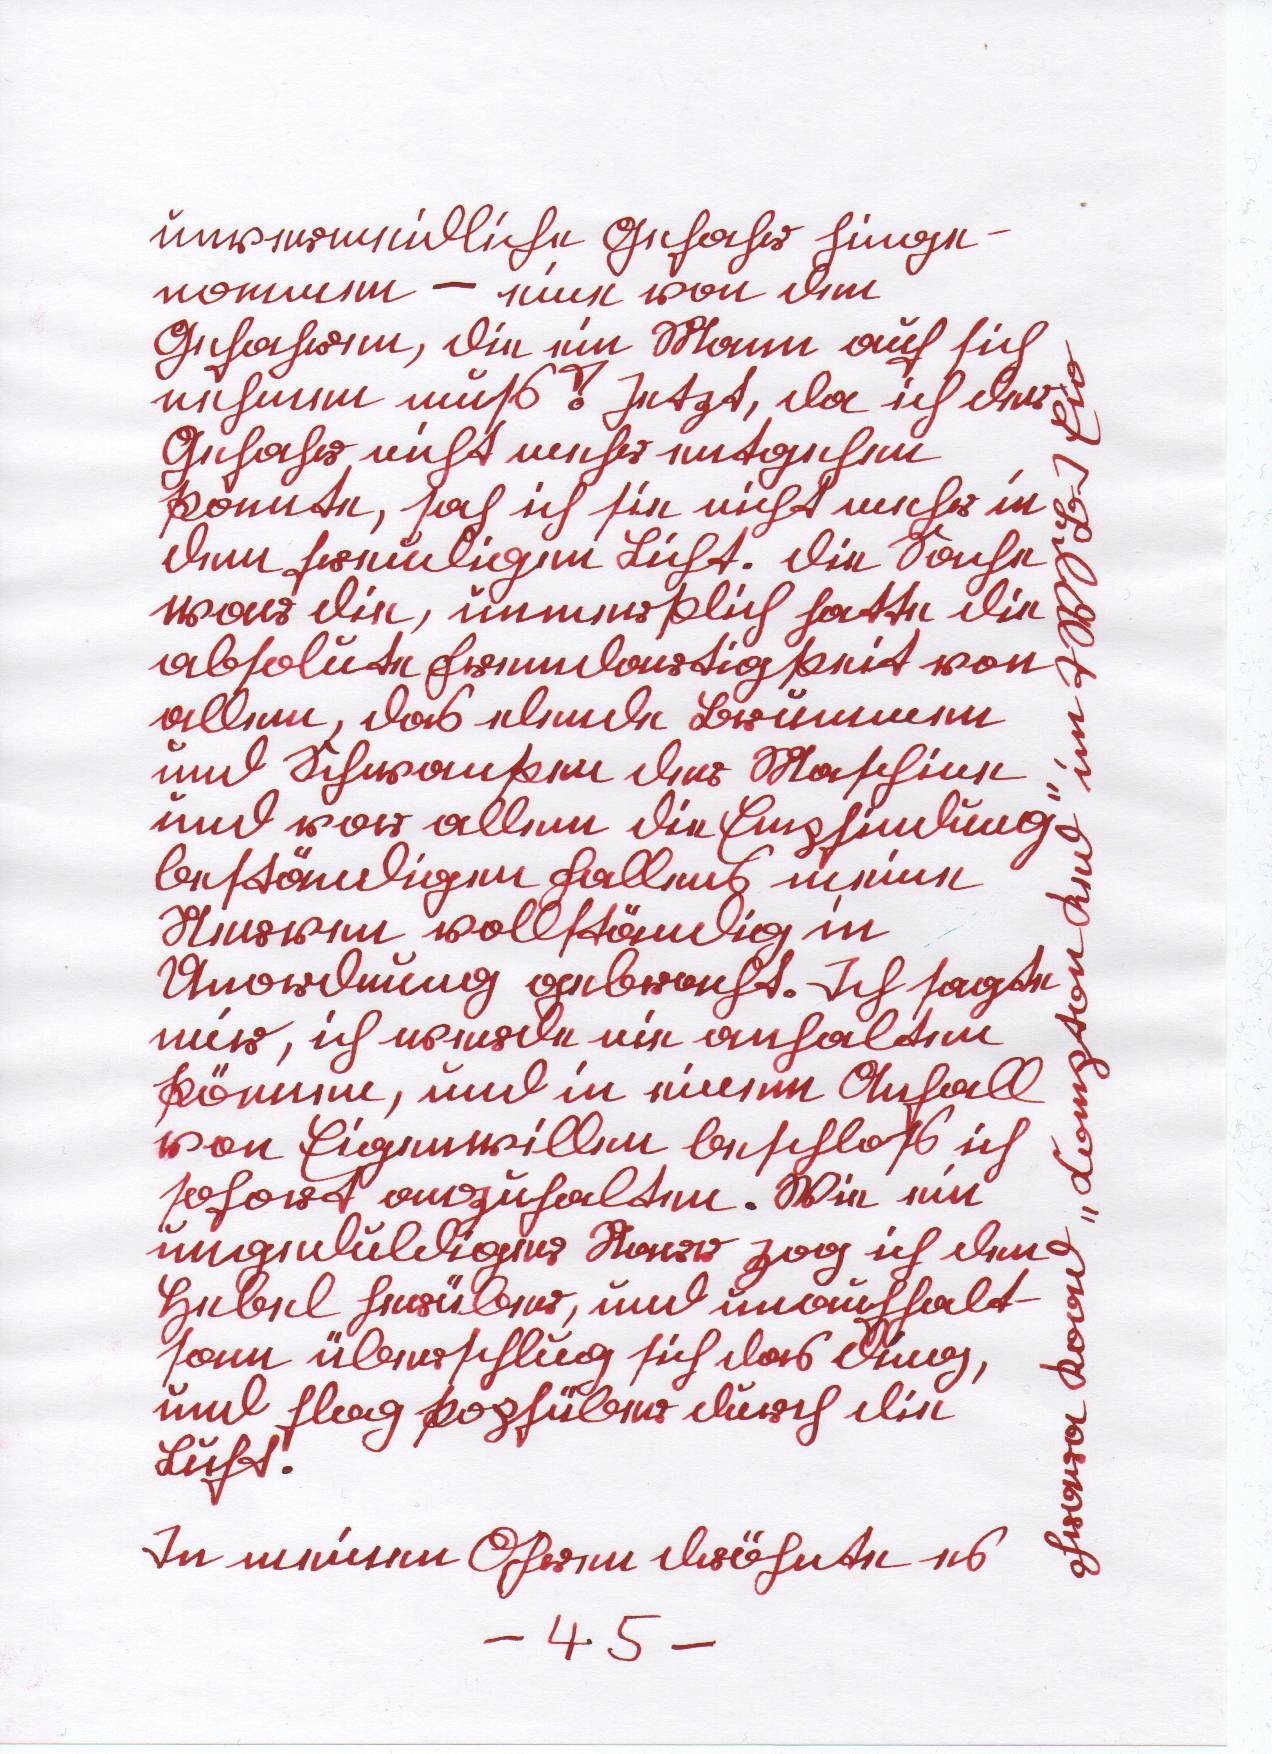 unvermeidliche Gefahr hinge-
nommen — eine von den
Gefahren, die ein Mann auf sich
nehmen muß! Jetzt, da ich der
Gefahr nicht mehr entgehen
konnte, sah ich sie nicht mehr in
dem freudigen Licht. Die Sache
war die, unmerklich hatte die
absolute Fremdartigkeit von
allem, das elende Brummen
und Schwanken der Maschine
und vor allem die Empfindung
beständigen Fallens meine
Nerven vollständig in
Unordnung gebracht. Ich sagte
mir, ich werde nie anhalten
können, und in einem Anfall
von Eigenwillen beschloß ich
sofort anzuhalten. Wie ein
ungeduldiger Narr zog ich den
Hebel herüber, und unaufhalt-
sam überschlug sich das Ding,
und flog kopfüber durch die
Luft.
In meinen Ohren dröhnte es
- 45 -